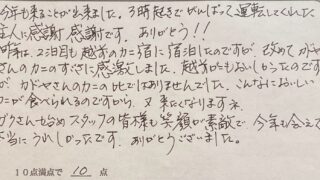 今年も来ることが出来ました。3時起きでがんばって運転してくれた
主人に感謝感謝です。ありがとう!!
昨年は、2泊目も越前のカニ宿に宿泊したのですが、改めてカドヤ
さんのカニのすごさに感激しました。越前がにもおいしかったのです
が、カドヤさんのカニの比ではありませんでした。こんなにおいしい
カニが食べられるのですから、又来たくなりますネ。
さんも始めスタッフの皆様も笑顔が素敵で、今年も会えて
本当にうれしかったです。ありがとうございました。
10点満点で 10 点